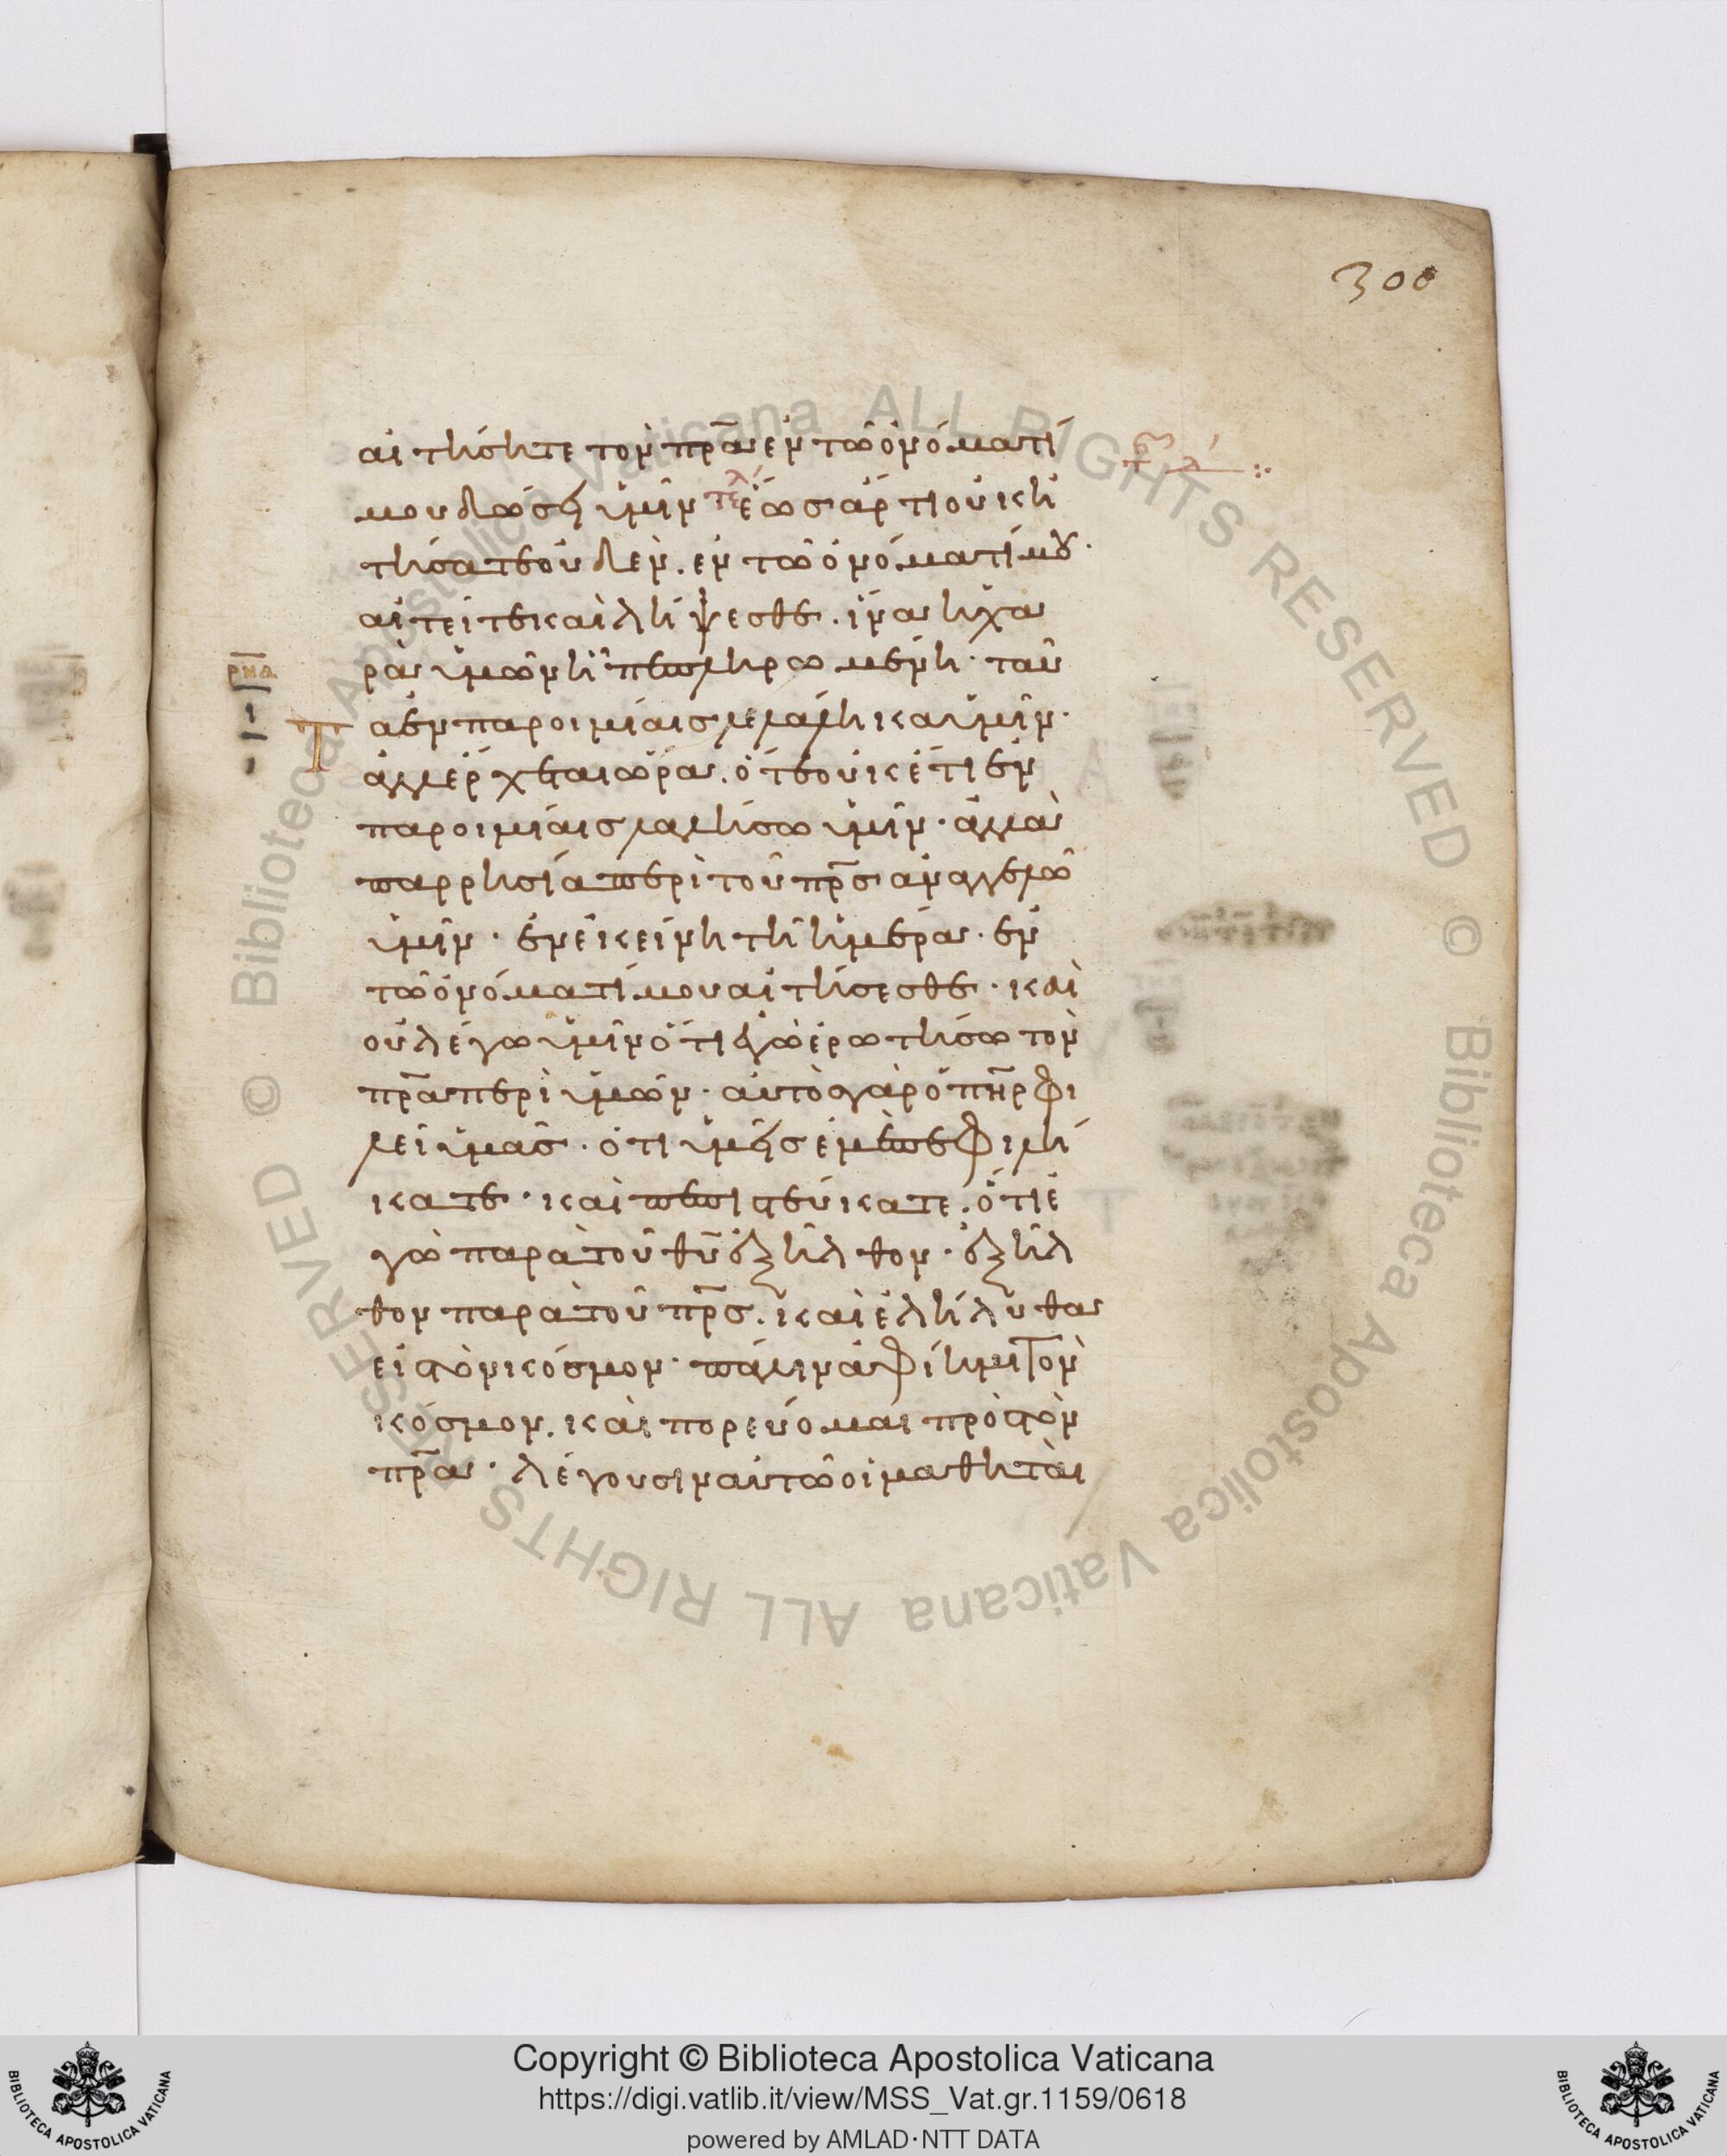 300
αἰτήσητε τὸν πρ̅α ἐν τῶ ὀνόματί
μου δώσει ὑμῖν τελ ἕως ἄρτι οὐκ ἠ
τήσατε οὐδέν. ἐν τῶ ὀνόματί μου·
αἰτεῖτε καὶ λήψεσθε. ἵνα ἡ χα
ρὰ ὑμῶν ἦ πεπληρωμένη· ταῦ
ρνα
τα ἐν παροιμίαις λελάληκα ὑμῖν·
ἀλλ ἔρχεται ὥρα. ὅτε οὐκέτι ἐν
παροιμίαις λαλήσω ὑμῖν· ἀλλὰ
παρρησία περὶ τοῦ πρ̅ς ἀναγγελῶ
ὑμῖν· ἐν ἐκείνη τῆ ἡμέρα· ἐν
τῶ ὀνόματί μου αἰτήσεσθε· καὶ
οὐ λέγω ὑμῖν ὅτι ἐγὼ ἐρωτήσω τὸν
πρ̅α περὶ ὑμῶν· αὐτὸς γὰρ ὁ πη̅ρ φι
λεῖ ὑμᾶς· ὅτι ὑμεῖς ἐμὲ πεφιλή
κατε· καὶ πεπιστεύκατε. ὅτι ἐ
γὼ παρὰ τοῦ θυ̅ ἐξῆλθον· ἐξῆλ
θον παρὰ τοῦ πρ̅ς. καὶ ἐλήλυθα
εἰς τὸν κόσμον· πάλιν ἀφίημι τὸν
κόσμον. καὶ πορεύομαι πρὸς τὸν
πρ̅α· λέγουσιν αὐτῶ οἱ μαθηταὶ
Copyright © Biblioteca Apostolica Vaticana
https://digi.vatlib.it/view/MSS_Vat.gr.1159/0618
powered by AMLAD·NTT DATA
BIBLIOTECA APOSTOLICA VATICANA
BIBLIOTECA APOSTOLICA VATICANA
© Biblioteca Apostolica Vaticana ALL RIGHTS RESERVED © Biblioteca Apostolica Vaticana ALL RIGHTS RESERVED